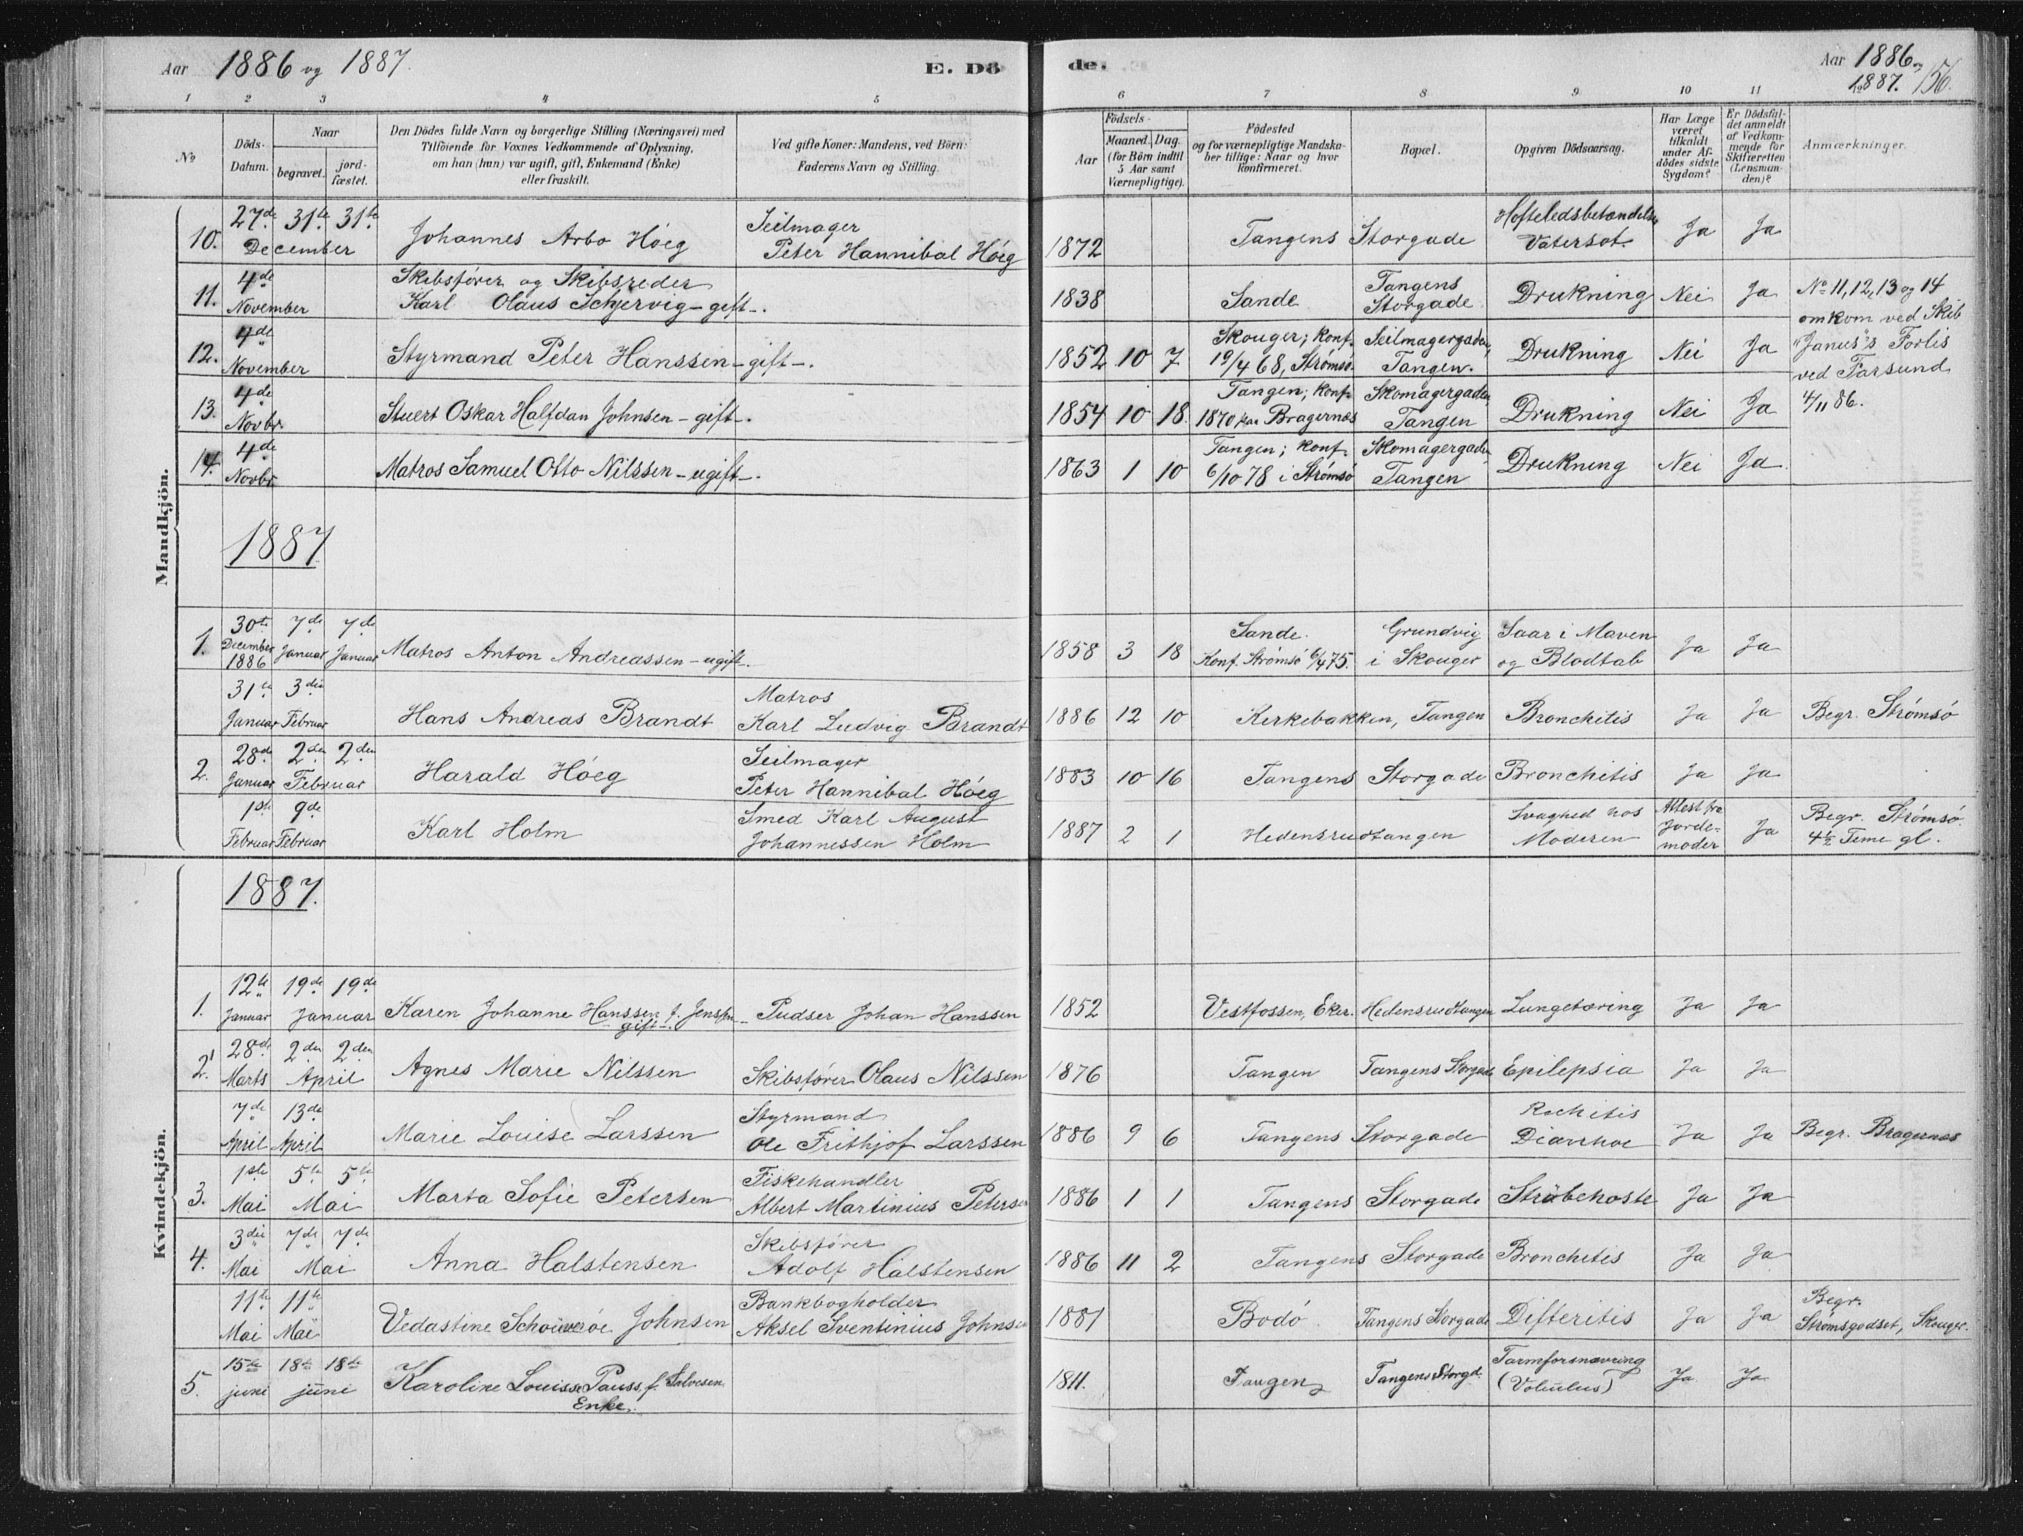 Aar 1886 og 1887.
E. Dö
de.
Aar 1886 og
1887. 156.
1 2 3 4 5 6 7 8 9 10 11 12
No
Döds-Datum.
Naar
begravet. jord-fæstet.
Den Dödes fulde Navn og borgerlige Stilling (Næringsvei) med
Tilföiende for Voxnes Vedkommende af Oplysning,
om han (hun) var ugift, gift, Enkemand (Enke)
eller fraskilt.
Ved gifte Koner: Mandens, ved Börn:
Faderens Navn og Stilling.
Födsels-
Aar Maaned. Dag.
(for Börn indtil 5 Aar samt Værnepligtige).
Födested
og for værnepligtige Mandska-
ber tillige: Naar og hvor
konfirmeret.
Bopæl.
Opgiven Dödsaarsag.
Har Læge været tilkaldt under Afdödes sidste Sygdom?
Er Dödsfaldet anmeldt af Vedkommende for Skifteretten (Lensmanden)?
Anmærkninger.
Mandkjön.
10. 27de 31te 31te December Johannes Arbo Höeg Seilmager Peter Hannibal Höeg 1872 Tangens Storgade Hofteledsbetændelse Vatersot. Ja Ja
11. 4de November Skibsförer og Skibsreder Karl Olaus Schjervig - gift -. 1838 Sande Tangens Storgade Drukning Nei Ja No 11, 12, 13 og 14
12. 4de November Styrmand Peter Hanssen - gift -. 1852 10 7 Skouger; konf. 19/4 68, Strømsø. Seilmagergaden, Tangen. Drukning Nei Ja omkom ved Skib "Janus"s Forlis
13. 4de Novbr Stuert Oskar Halfdan Johnsen - gift -. 1854 10 18 Tangen; konf. 1870 paa Bragernæs Skomagergaden Tangen Drukning Nei Ja ved Farsund 4/11 86.
14. 4de Novbr Matros Samuel Otto Nilssen - ugift -. 1863 1 10 Tangen; konf. 6/10 78 i Strømsø Skomagergaden Tangen Drukning Nei Ja
1887
1. 30te December 1886 7de Januar 7de Januar Matros Anton Andreassen - ugift. 1858 3 18 Sande. Konf. Strømsø 6/4 75. Grundvig i Skouger Saar i Maven og Blodtab Ja Ja
31te Januar 3die Februar Hans Andreas Brandt Matros Karl Ludvig Brandt 1886 12 10 Kirkebakken, Tangen Bronchitis Ja Ja Begr. Strømsö
2. 28de Januar 2den 2den Februar Harald Höeg Seilmager Peter Hannibal Höeg 1883 10 16 Tangens Storgade Bronchitis Ja Ja
1ste Februar 9de Februar Karl Holm Smed Karl August Johannessen Holm 1887 2 1 Hedensrudtangen Svaghed hos Moderen Attest fra Jordemoder Ja Begr. Strømsø. 4½ Time gl.
Kvindekjön.
1887.
1. 12te Januar 19de 19de Januar Karen Johanne Hanssen f. Jenssen - gift -. Pudser Johan Hanssen 1852 Vestfossen, Eker. Hedensrudtangen Lungetæring Ja Ja
2. 28de Marts 2den 2den April Agnes Marie Nilssen Skibsförer Olaus Nilssen 1876 Tangen Tangens Storgade Epilepsia Ja Ja
7de April 13de April Marie Louise Larssen Styrmand Ole Frithjof Larssen 1886 9 6 Tangens Storgade Rachitis Diarrhoe Ja Ja Begr. Bragernæs
3. 1ste Mai 5te 5te Mai Marta Sofie Petersen Fiskehandler Albert Martinius Petersen 1886 1 1 Tangens Storgade Strübehoste Ja Ja
4. 3die Mai 7de 7de Mai Anna Halstensen Skibsförer Adolf Halstensen 1886 11 2 Tangens Storgade Bronchitis Ja Ja
11te Mai 11te Mai Vedastine Johnsen Bankbogholder Aksel Sventinius Johnsen 1881 Bodö. Tangens Storgade Difteritis Ja Ja Begr. Strømsgodset, Skouger.
5. 15te juni 18te 18te juni Karoline Louise Pauss, f. Salvesen. Enke. 1811. Tangen Tangens Storgd. Tarmforsnævring (Volvulus) Ja Ja